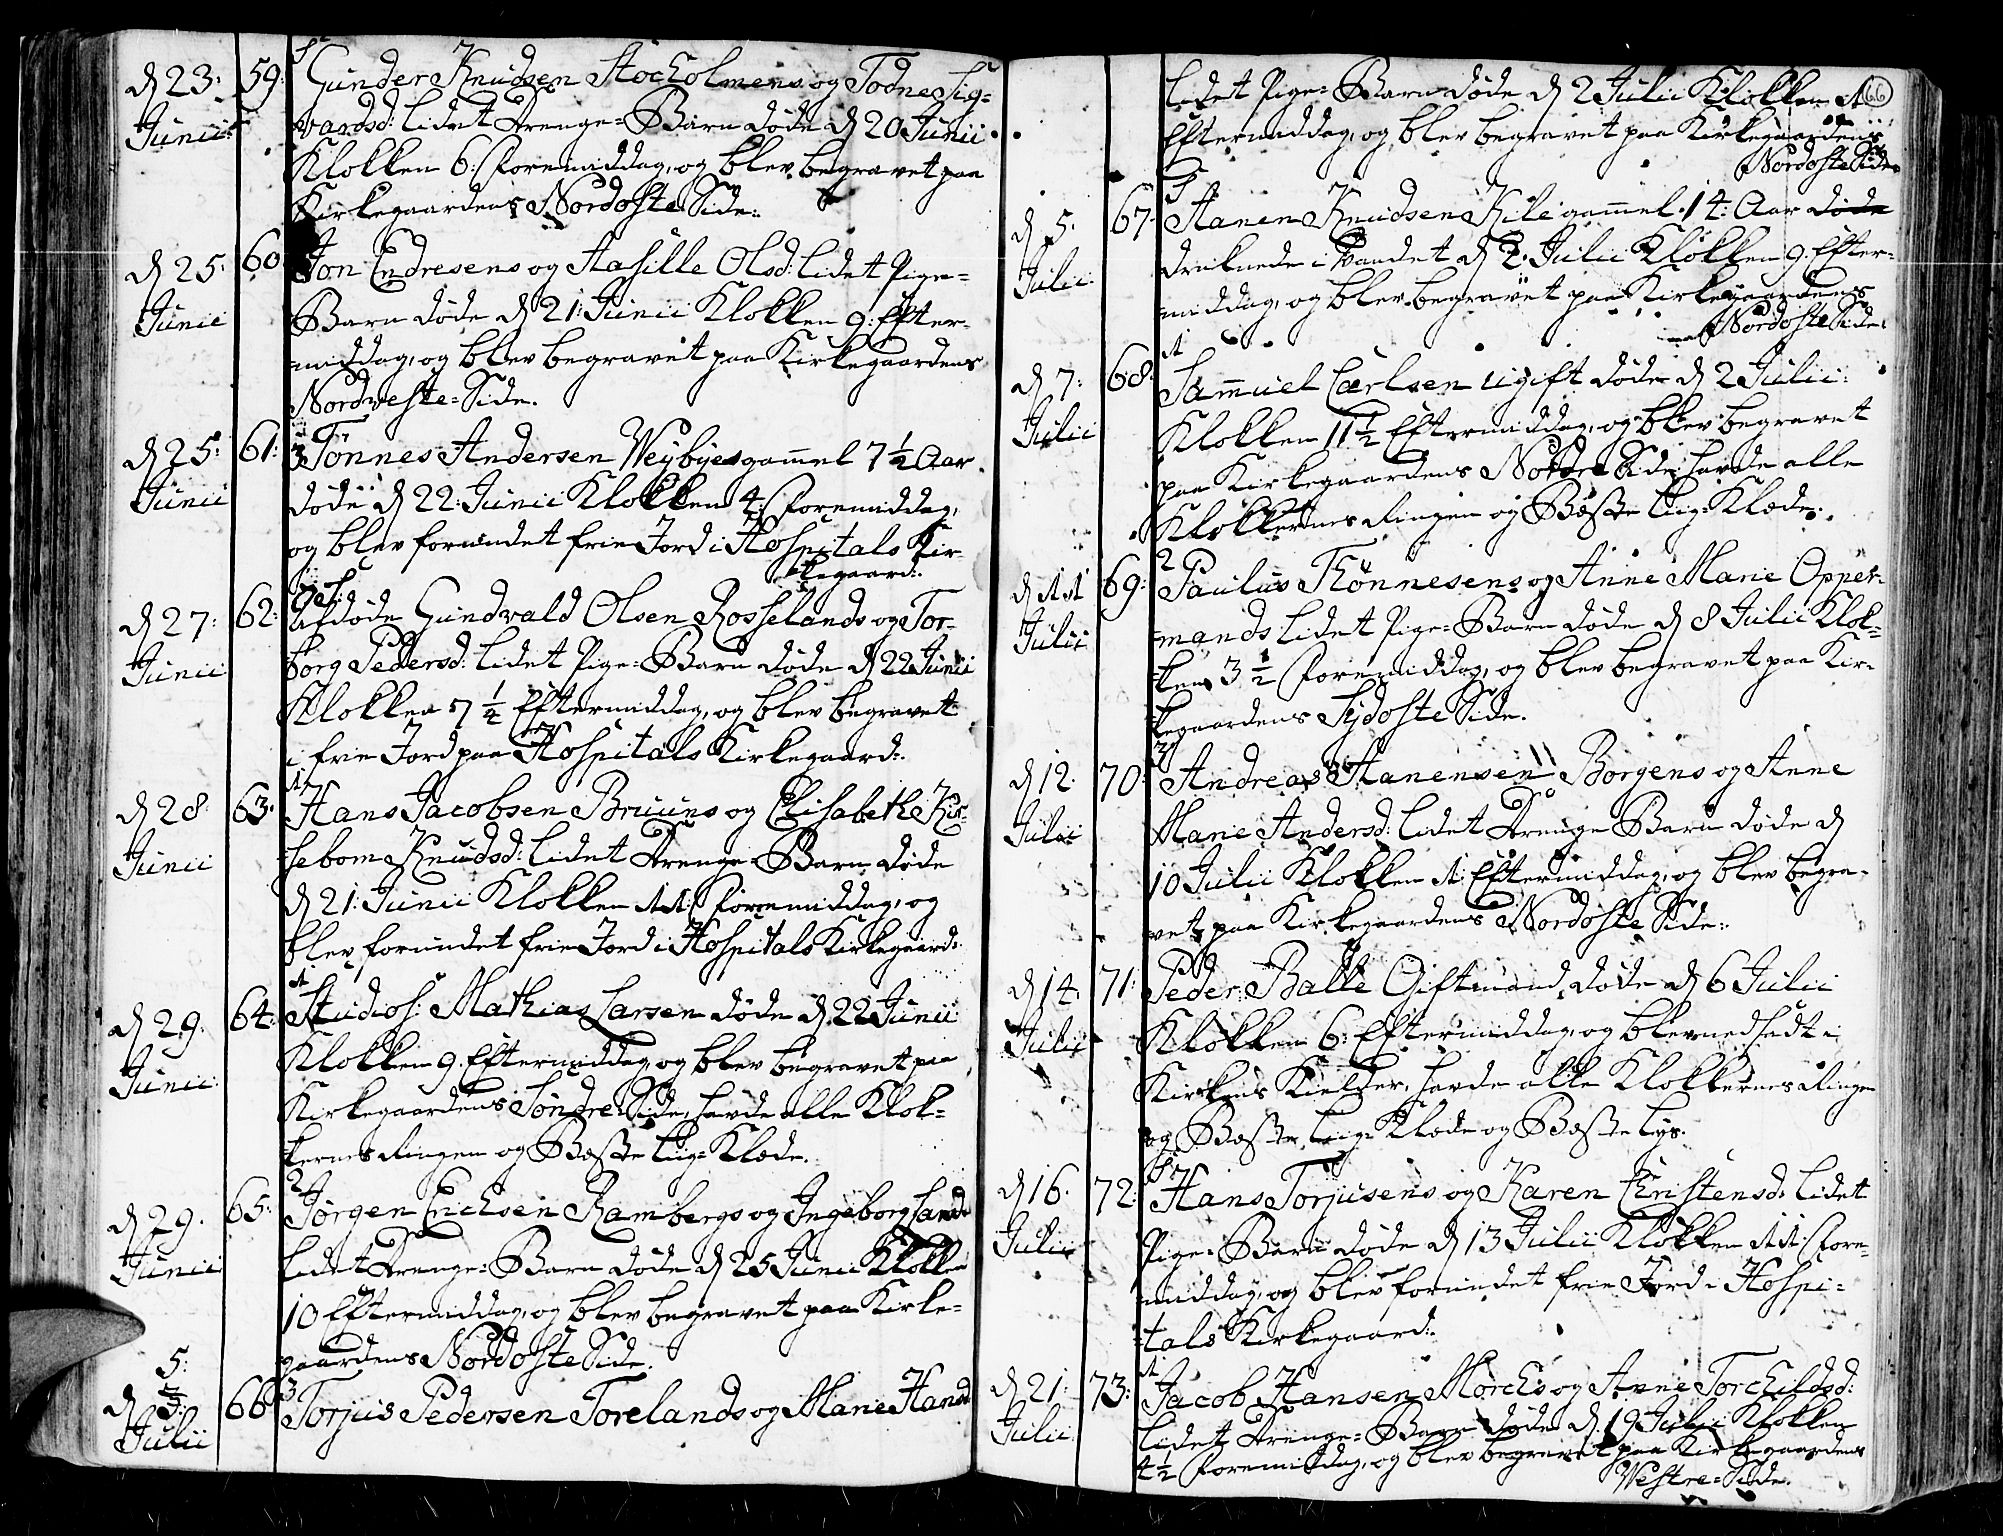 d 23: 59: Gunder Knudsen Stocholmens og Todne Sig=
Junii vardsd: lidet Drenge=Barn døde d 20 Junii
Klokken 6: Formiddag, og blev begravet paa
Kirkegaardens Nordoste Side:
d 25: 60: Jon Endresens og Aasille Olsd: lidet Pige=
Junii Barn døde d 21: Junii Klokken 9: Efter=
middag, og blev begravet paa Kirkegaardens
Nordveste=Side.
3
d 25: 61: Tönnes Andersen Weybyes gam̄el 7½ Aar
Junii døde d 22: Junii Klokken 4: Formiddag,
og blev forundet frie Jord i Hospitals Kir=
kegaard:
d 27: 62: Afdøde Gundvald Olsen Rosselands og Tor=
Junii borg Pedersd: lidet Pige=Barn døde d 22 Junii
Klokken 7½ Eftermiddag, og blev begravet
i frie Jord paa Hospitals Kirkegaard:
1
d 28: 63: Hans Jacobsen Bruuns og Elisabeth Kir=
Junii sebom Knudsd: lidet Drenge=Barn døde
d 21: Junii Klokken 11: Formiddag, og
blev forundet frie Jord i Hospitals Kirkegaard:
1
d 29. 64: Studios: Mathias Larsen døde d 22 Junii
Junii Klokken 9. Eftermiddag, og blev begravet paa
Kirkegaardens Söndre=Side, havde alle Klok=
kernes Ringen og Beste Liig=Klæde.
2
d 29. 65: Jörgen Erichsen Rambergs og Ingeborg
Junii lidet Drenge=Barn døde d 25 Junii Klokken
10 Eftermiddag, og blev begravet paa Kirke=
gaardens Nordoste Side.
5:
3
d 3: 66 Torjus Pedersen Torelands og Marie Hansd
Julii
66
lidet Pige=Barn døde d 2 Julii Klokken 1
Eftermiddag, og blev begravet paa Kirkegaardens
Nordoste Side.
d 5. 67. Hanen Knudsen Kile gam̄el 14: Aar døde
Julii druknede i Vandet d 2. Julii Klokken 9. Efter=
middag, og blev begravet paa Kirkegaardens
Nordoste Side.
1
d 7: 68. Sam̄uel Carlsen ugift døde d 2 Julii
Julii Klokken 11½ Eftermiddag, og blev begravet
paa Kirkegaardens Nordre Side, havde alle
Klokkernes Ringen og Beste Liig=Klæde.
2
d 11 69: Paulus Thönnesens og Anne Marie Opper=
Julii mands lidet Pige=Barn døde d 8 Julii Klok=
ken 3½ Formiddag, og blev begravet paa Kir=
kegaardens Sydoste Side.
d 12. 70. Andreas Hanensen Borgens og Anne
Julii Marie Andersd: lidet Drenge Barn døde d
10 Julii Klokken 1: Eftermiddag, og blev begra=
vet paa Kirkegaardens Nordoste Side:
d 14. 71: Peder Balle Giftmand døde d 6 Julii
Julii Klokken 6: Eftermiddag, og blev nedsadt i
Kirkens Kielder, havde alle Klokkernes Ringen
og Beste Liig=Klæde og Beste Lys.
d 16. 72: Hans Torjusens og Karen Christensd: lidet
Julii Pige=Barn døde d 13 Julii Klokken 11: For=
middag, og blev forundet frie Jord i Hospi=
tals Kirkegaard:
1
d 21: 73: Jacob Hansen Mörchs og Anne Torchildsd:
Julii lidet Drenge=Barn døde d 19 Julii Klokken
4½ Formiddag, og blev begravet paa Kirkegaardens
Westre=Side.